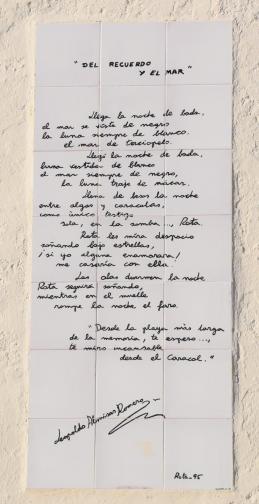 "DEL RECUERDO
Y EL MAR"
Llega la noche de boda,
el mar se viste de negro
la luna siempre de blanco.
el mar de terciopelo.
Llegó la noche de boda,
luna vestida de blanco
el mar siempre de negro,
la luna traje de nácar.
Llena de besos la noche
entre algas y caracolas,
como único testigo
sola, en la sombra..., Rota.
Rota les mira despacio
soñando bajo estrellas,
¡si yo alguna enamorara!
me casaría con ella.
Las olas duermen la noche
Rota seguirá soñando,
mientras en el muelle
rompe la noche el faro.
"Desde la playa más larga
de la memoria, te espero...,
te miro incansable
desde el Caracol."
Leopoldo Almisas Romero
Rota-95